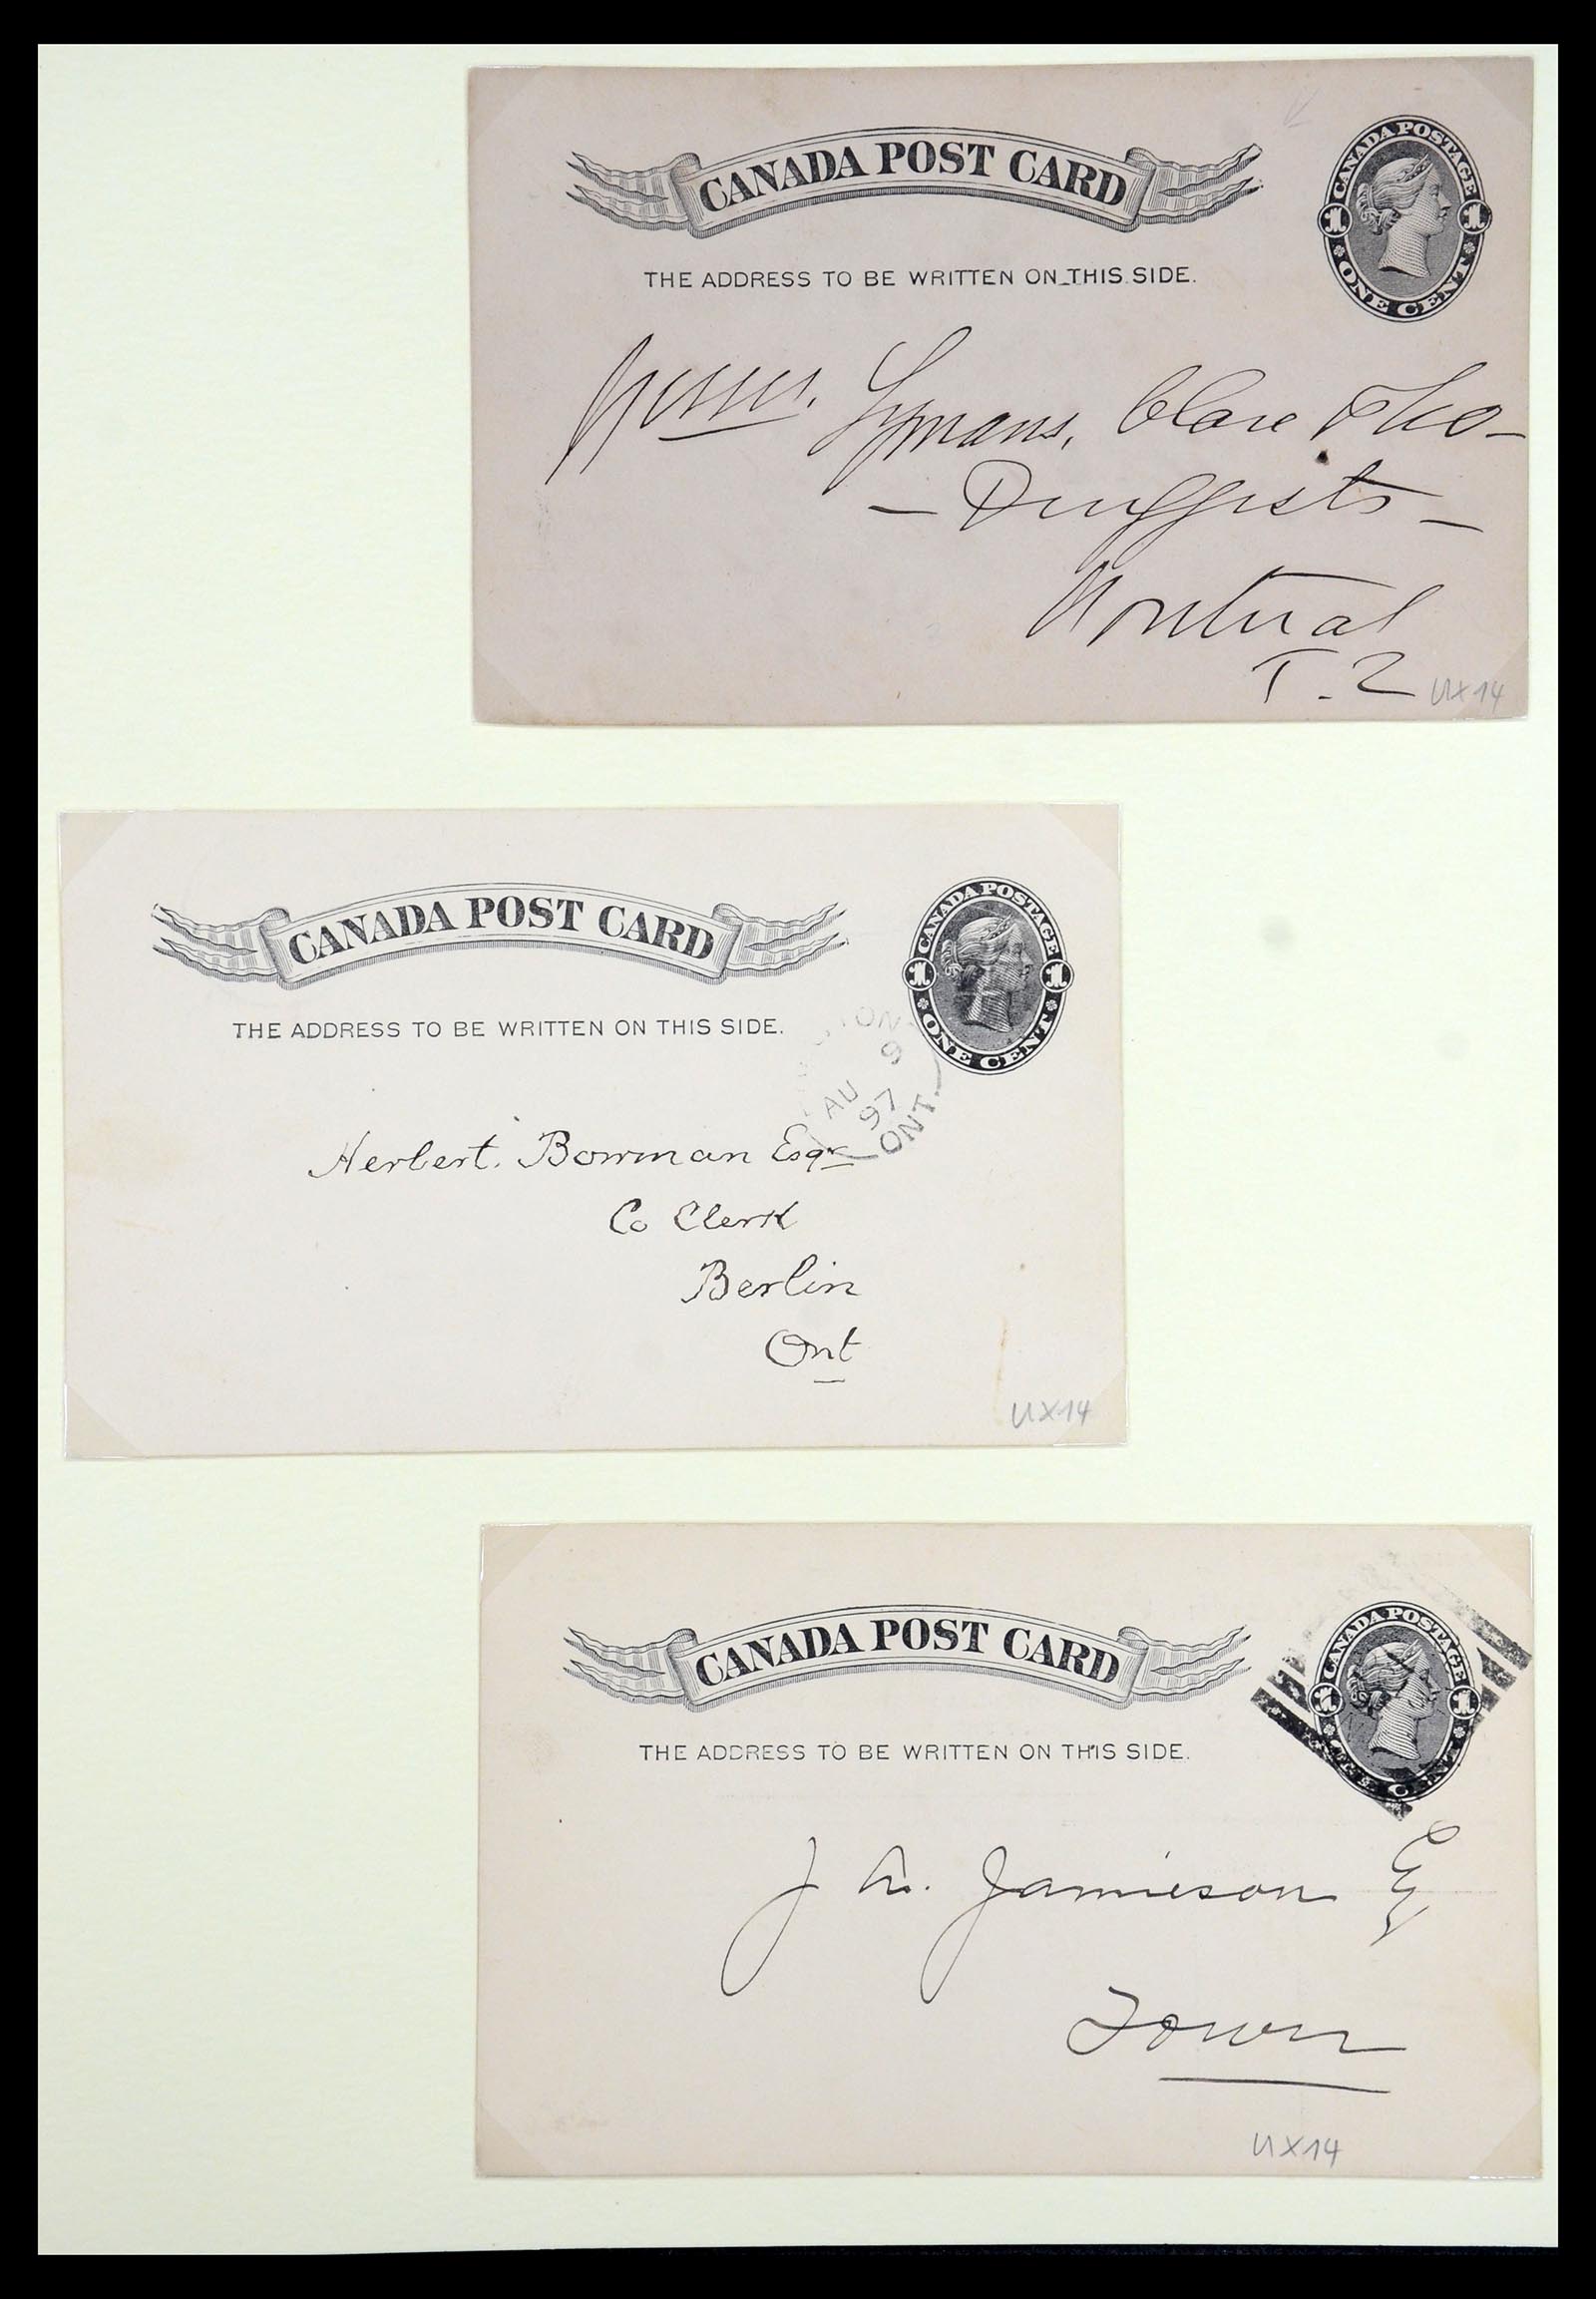 CANADA POST CARD
CANADA POSTAGE
1 1
ONE CENT
THE ADDRESS TO BE WRITTEN ON THIS SIDE.
Messrs. Lymans, Clare & Co
- Druggists -
Montreal
UX14
CANADA POST CARD
CANADA POSTAGE
1 1
ONE CENT
THE ADDRESS TO BE WRITTEN ON THIS SIDE.
AU 9
97
ONT.
Herbert. Bowman Esqr
Co Clerk
Berlin
Ont
UX14
CANADA POST CARD
CANADA POSTAGE
1
CENT
THE ADDRESS TO BE WRITTEN ON THIS SIDE.
J Jamieson Esq
Town
UX14